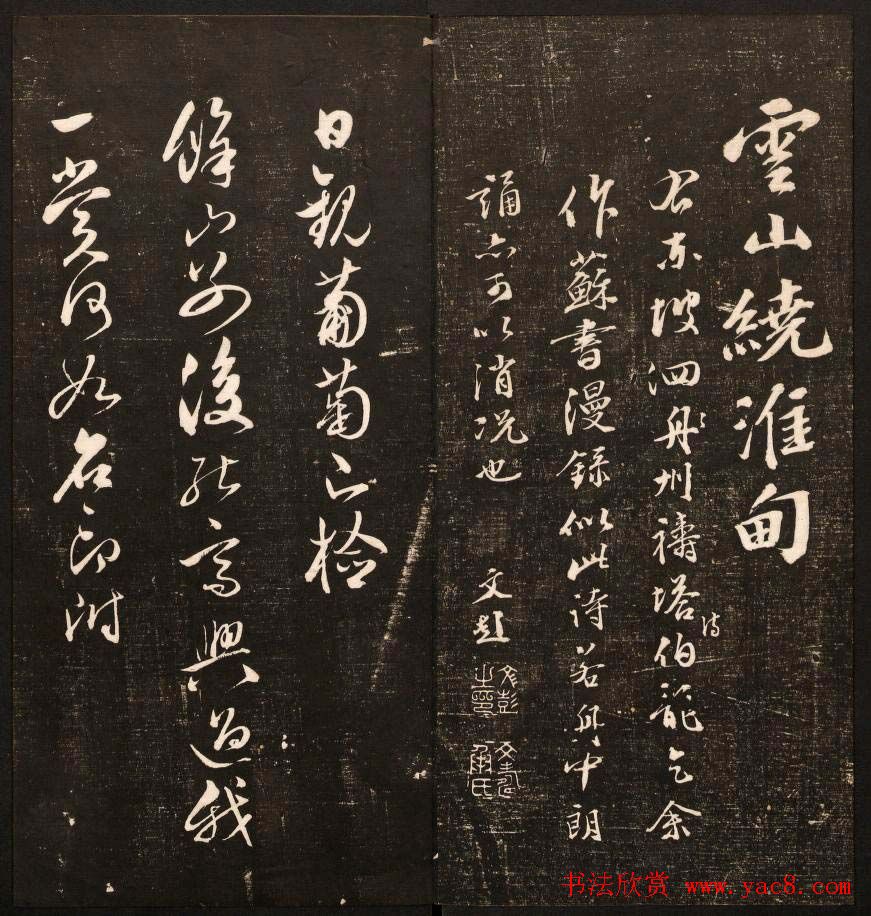 雲山繞淮甸
右東坡泗舟州禱塔詩伯龍乞余
作蘇書漫錄似此詩若舟中朗
誦亦可以消況也
文彭
文彭之印
文壽承氏
日觀葡萄檢
後能高興過我
一賞何如名印附
书法欣赏 www.yac8.com